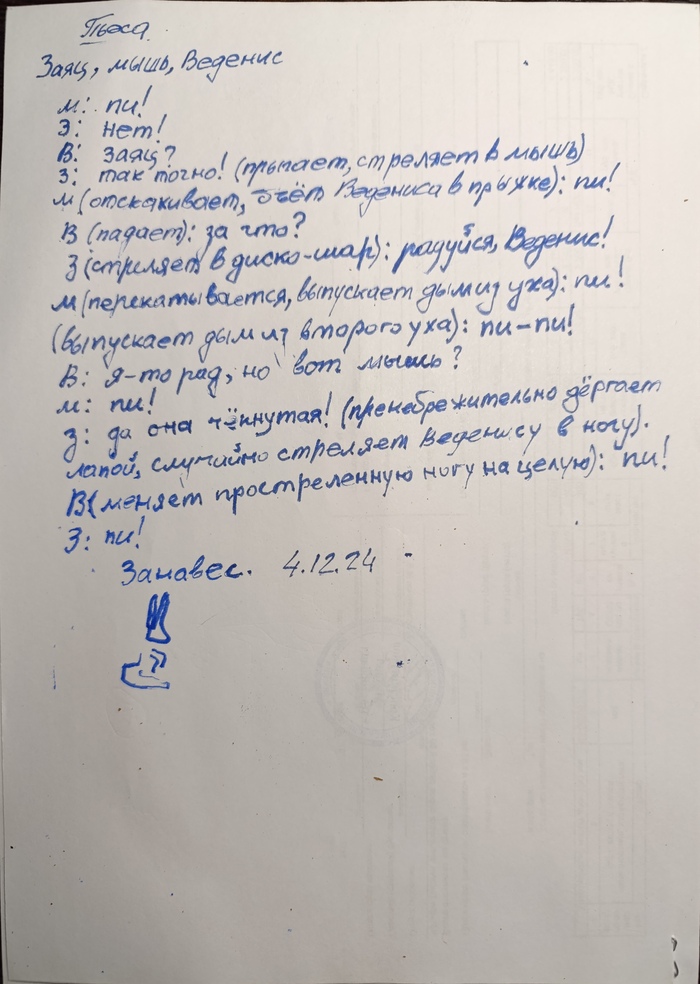 Пьеса.
Заяц, мышь, Веденис
М: пи!
З: нет!
В: Заяц?
З: так точно! (прыгает, стреляет в мышь)
М (отскакивает, бьёт Ведениса в прыжке): пи!
В (падает): за что?
З (стреляет в диско-шар): радуйся, Веденис!
М (перекатывается, выпускает дым из уха): пи!
(выпускает дым из второго уха): пи-пи!
В: я-то рад, но вот мышь?
М: пи!
З: да она чёкнутая! (пренебрежительно дёргает
лапой, случайно стреляет Веденису в ногу).
В (меняет простреленную ногу на целую): пи!
З: пи!
Занавес. 4.12.24